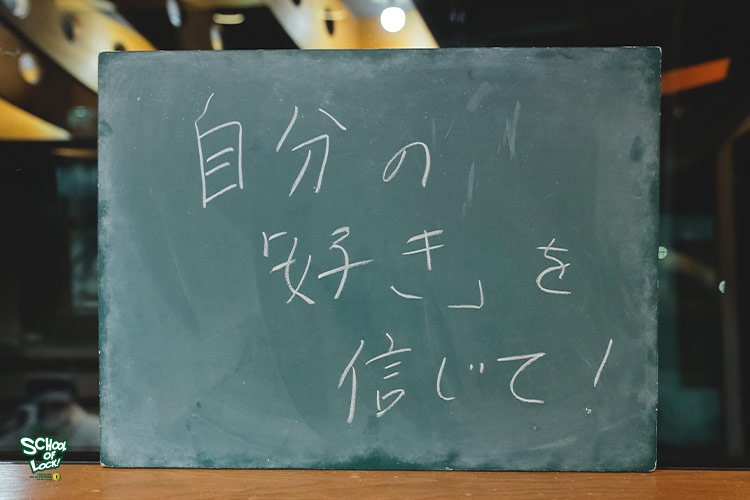 自分の
「好き」を
信じて!
SCHOOL
OF
LOCK!